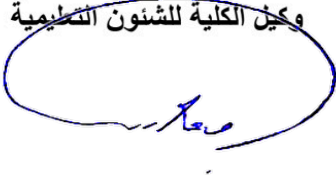 وكيل الكلية للشئون التعليمية